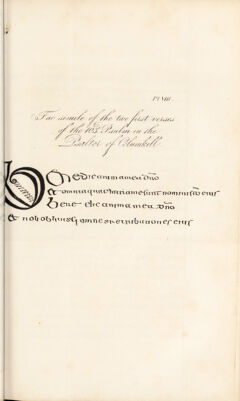 Pl. VIII.
Fac simile of the two first verses
of the 103d. Psalm in the
Psalter of Columkill.
Benedic anima mea dño
& omnia quae intra me sunt nomini sco eius
benedic anima mea dño
& noli oblivisci omnes retributiones eius